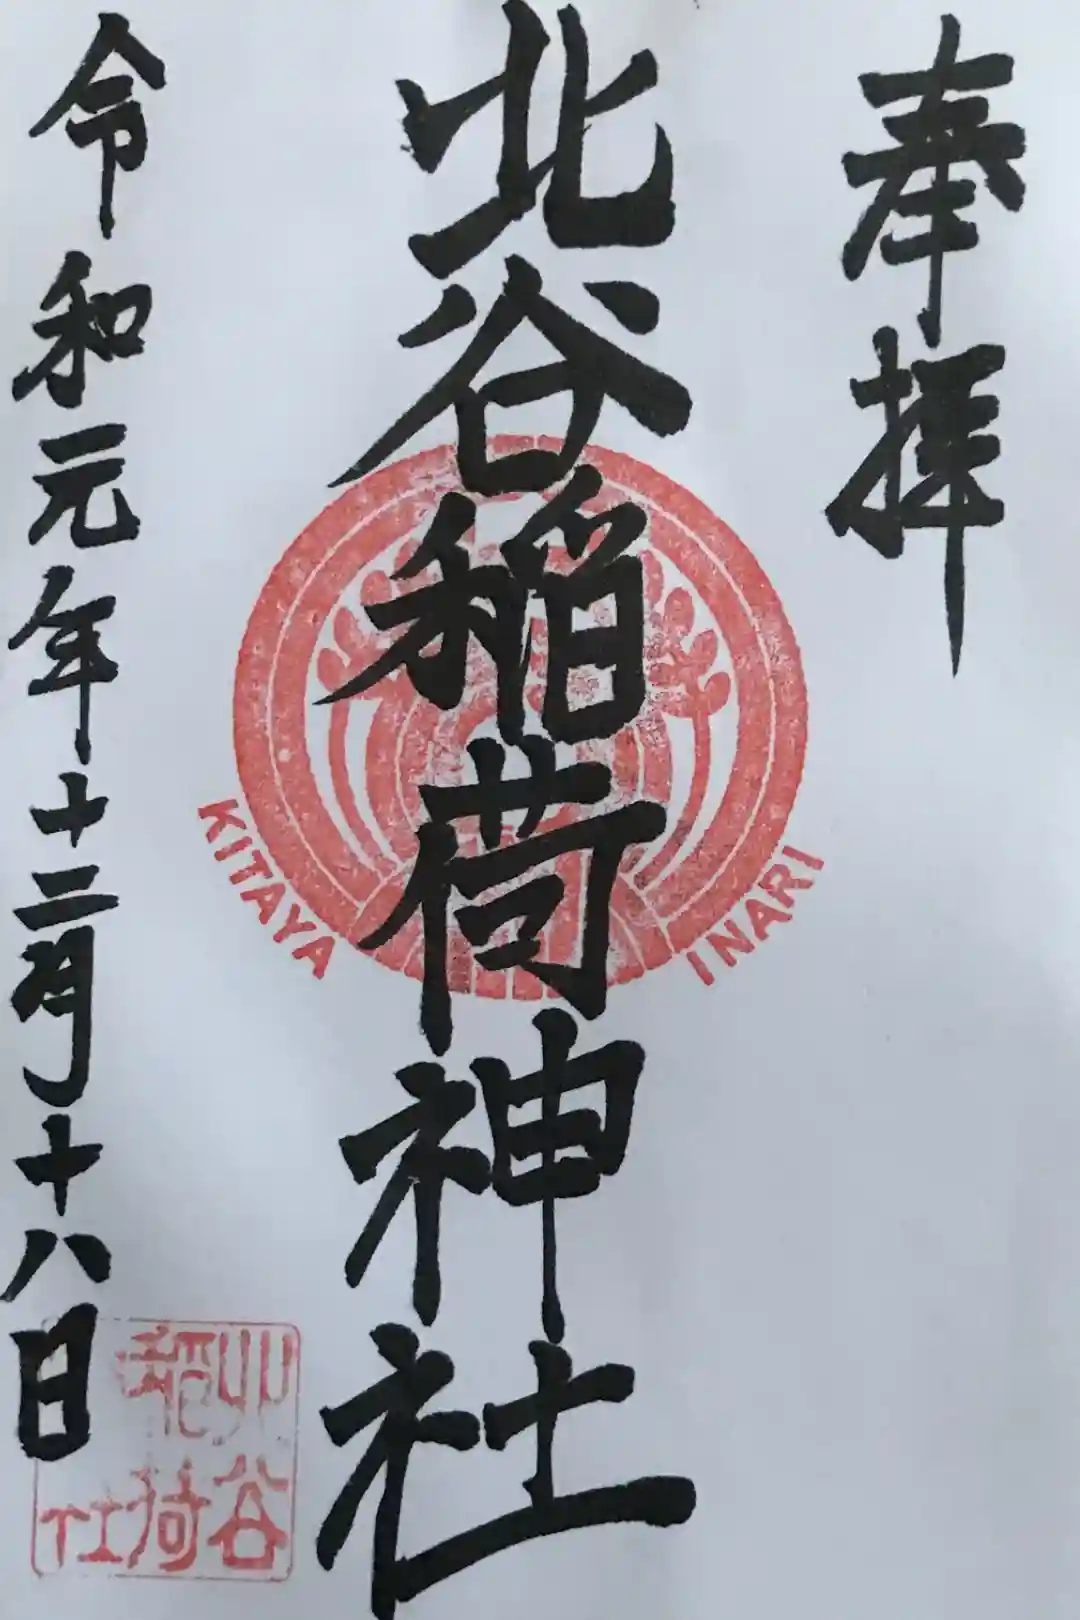 奉拝
北谷稲荷神社
KITAYA INARI
令和元年十二月十八日
北谷稲荷社